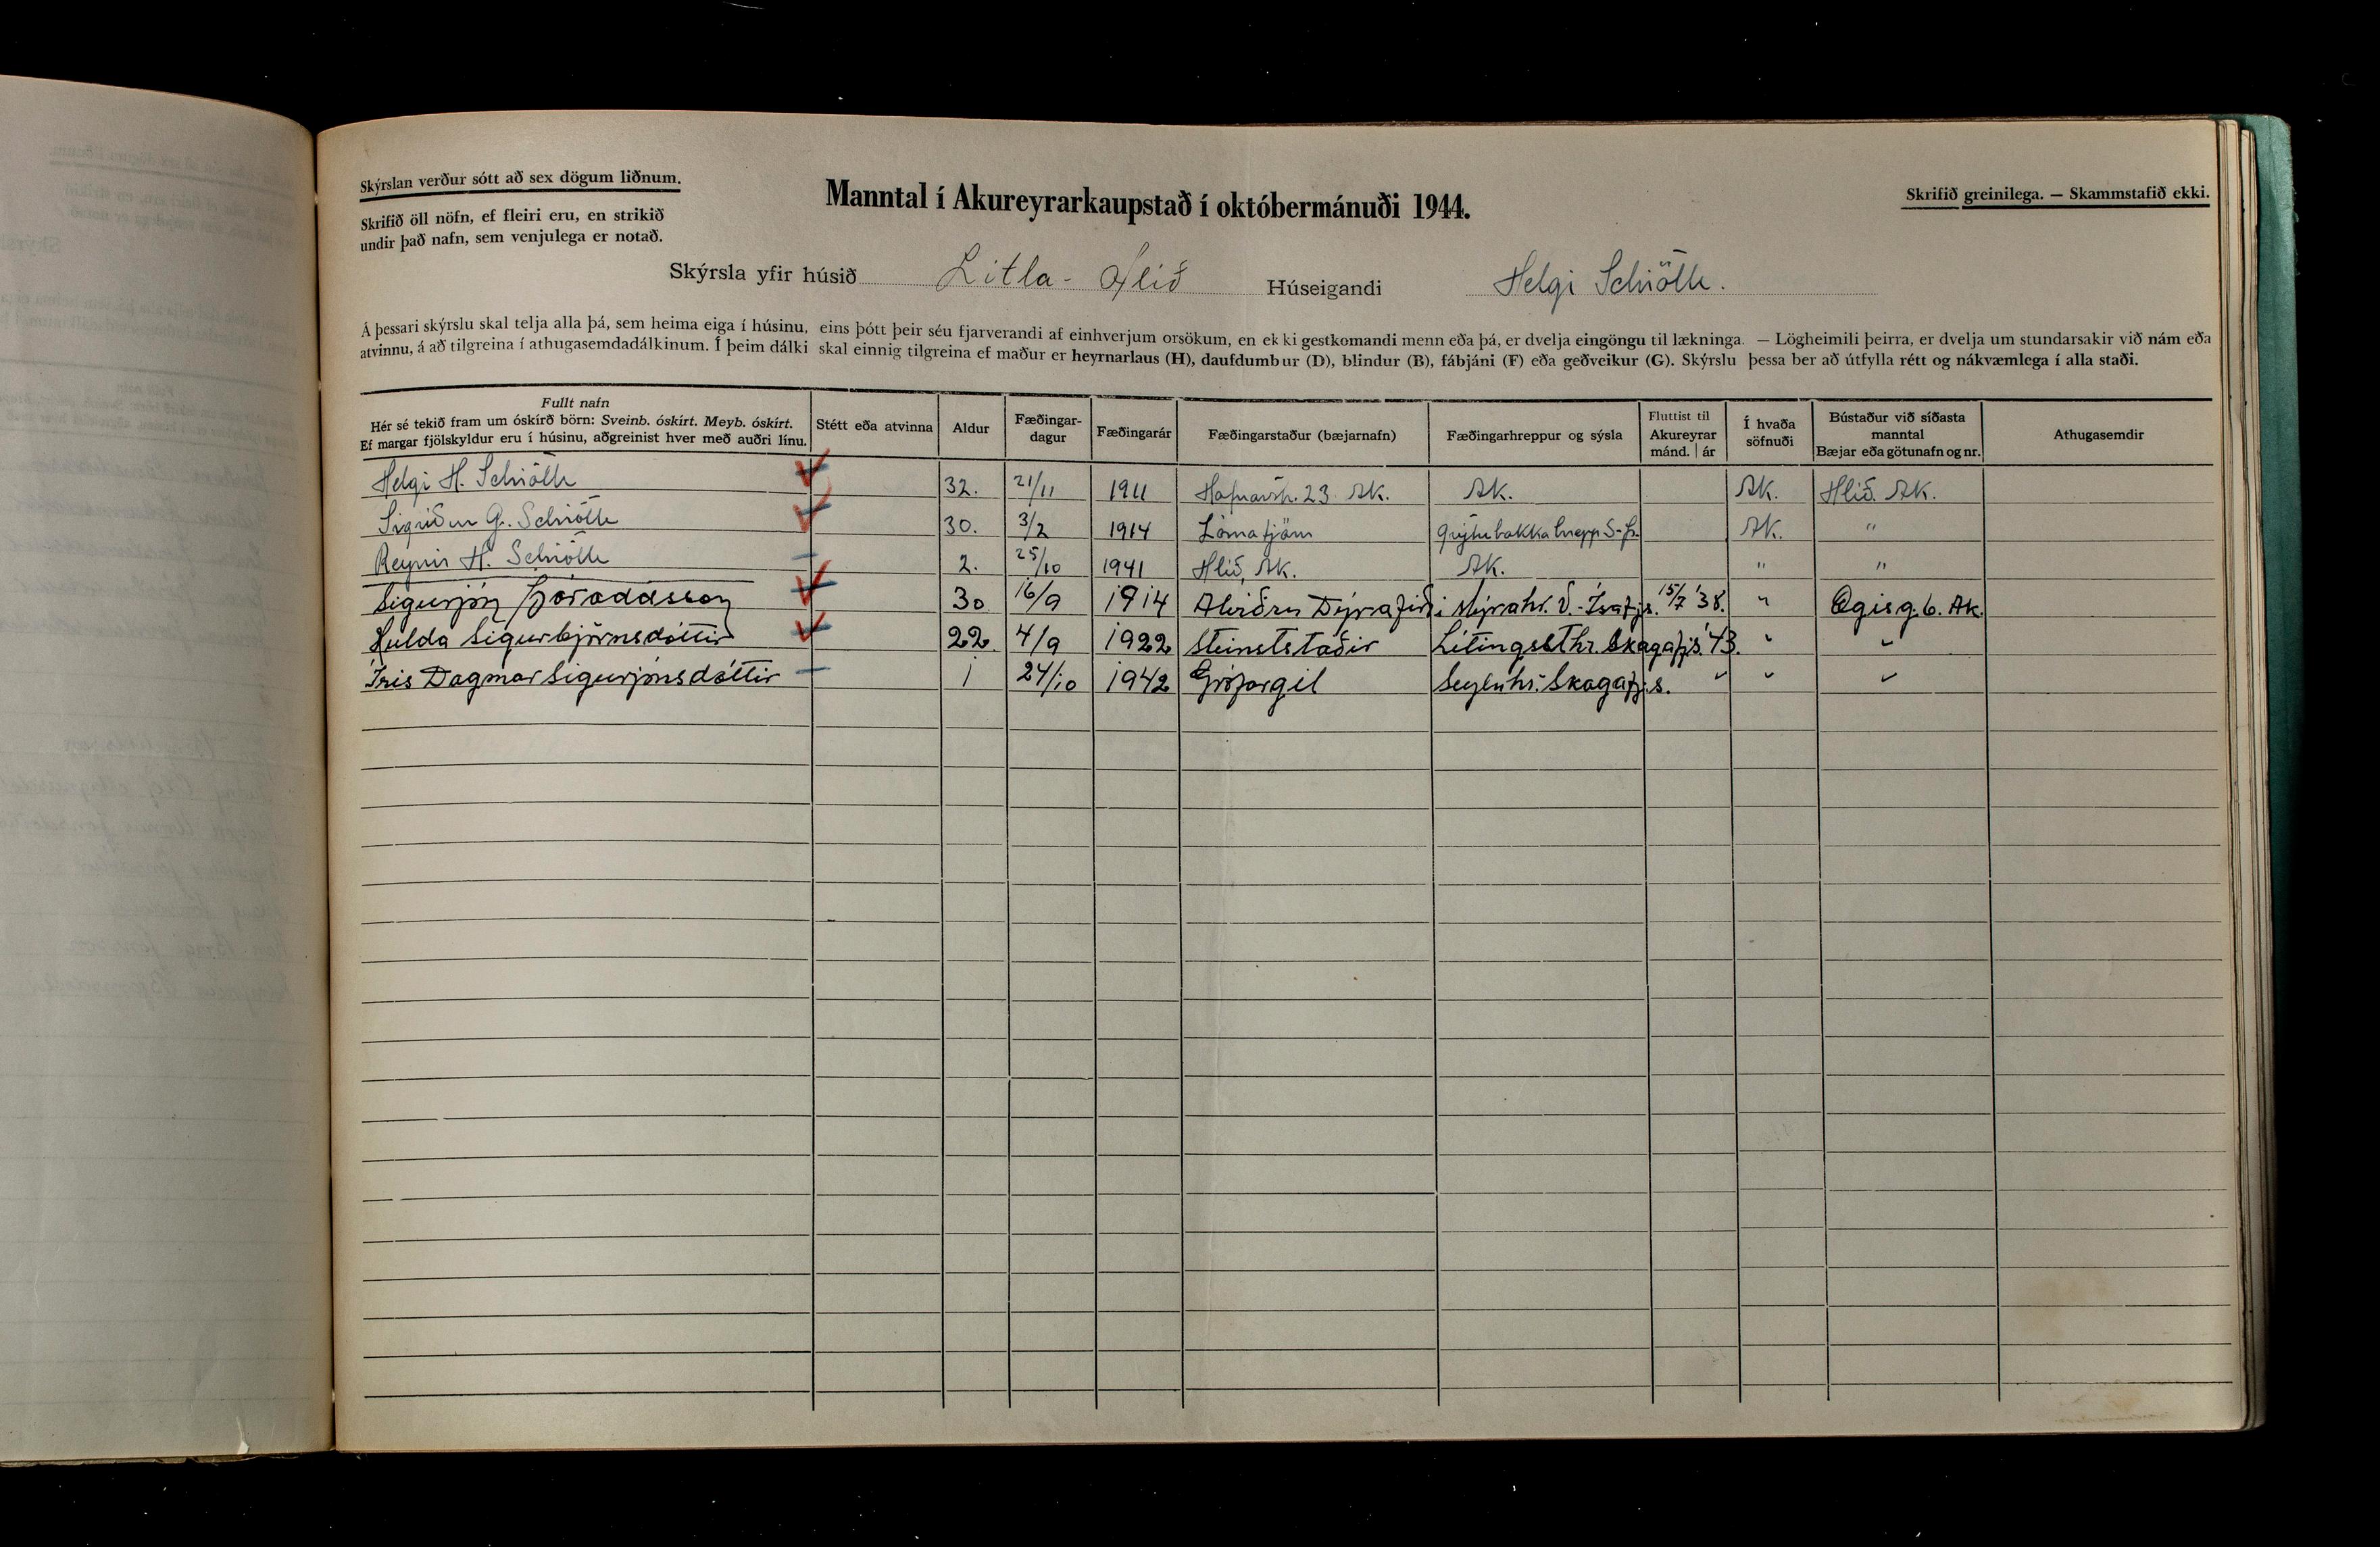 Skýrslan verður sótt að sex dögum liðnum.
Skrifið öll nöfn, ef fleiri eru, en strikið
undir það nafn, sem venjulega er notað.
Manntal í Akureyrarkaupstað í októbermánuði 1944.
Skrifið greinilega. — Skammstafið ekki.
Skýrsla yfir húsið Litla-Hlíð Húseigandi Helgi Schiöth.
Á þessari skýrslu skal telja alla þá, sem heima eiga í húsinu, eins þótt þeir séu fjarverandi af einhverjum orsökum, en ekki gestkomandi menn eða þá, er dvelja eingöngu til lækninga. — Lögheimili þeirra, er dvelja um stundarsakir við nám eða
atvinnu, á að tilgreina í athugasemdadálkinum. Í þeim dálki skal einnig tilgreina ef maður er heyrnarlaus (H), daufdumbur (D), blindur (B), fábjáni (F) eða geðveikur (G). Skýrslu þessa ber að útfylla rétt og nákvæmlega í alla staði.
Fullt nafn
Hér sé tekið fram um óskírð börn: Sveinb. óskírt. Meyb. óskírt.
Ef margar fjölskyldur eru í húsinu, aðgreinist hver með auðri línu.
Stétt eða atvinna
Aldur
Fæðingar-
dagur
Fæðingarár
Fæðingarstaður (bæjarnafn)
Fæðingarhreppur og sýsla
Fluttist til
Akureyrar
mánd. | ár
Í hvaða
söfnuði
Bústaður við síðasta
manntal
Bæjar eða götunafn og nr.
Athugasemdir
Helgi H. Schiöth 32. 21/11 1911 Hafnarstr. 23 Ak. Ak. Ak. Hlíð. Ak.
Sigríður G. Schiöth 30. 3/2 1914 Lómatjörn Grýtubakkahrepp S-Þ. Ak. "
Reynir H. Schiöth 2. 25/10 1941 Hlíð, Ak. Ak. " "
Sigurjón Þóroddsson 30 16/9 1914 Alviðru Dýrafirði Mýrahr. V.-Ísafj.s. 15/7 '38. " Ægisg. 6. Ak.
Hulda Sigurbjörnsdóttir 22 4/9 1922 Steinsstaðir Lítingssthr. Skagafj.s. '43. " "
Íris Dagmar Sigurjónsdóttir 1 24/10 1942 Grófargil Seyluhr. Skagafj.s. " " "